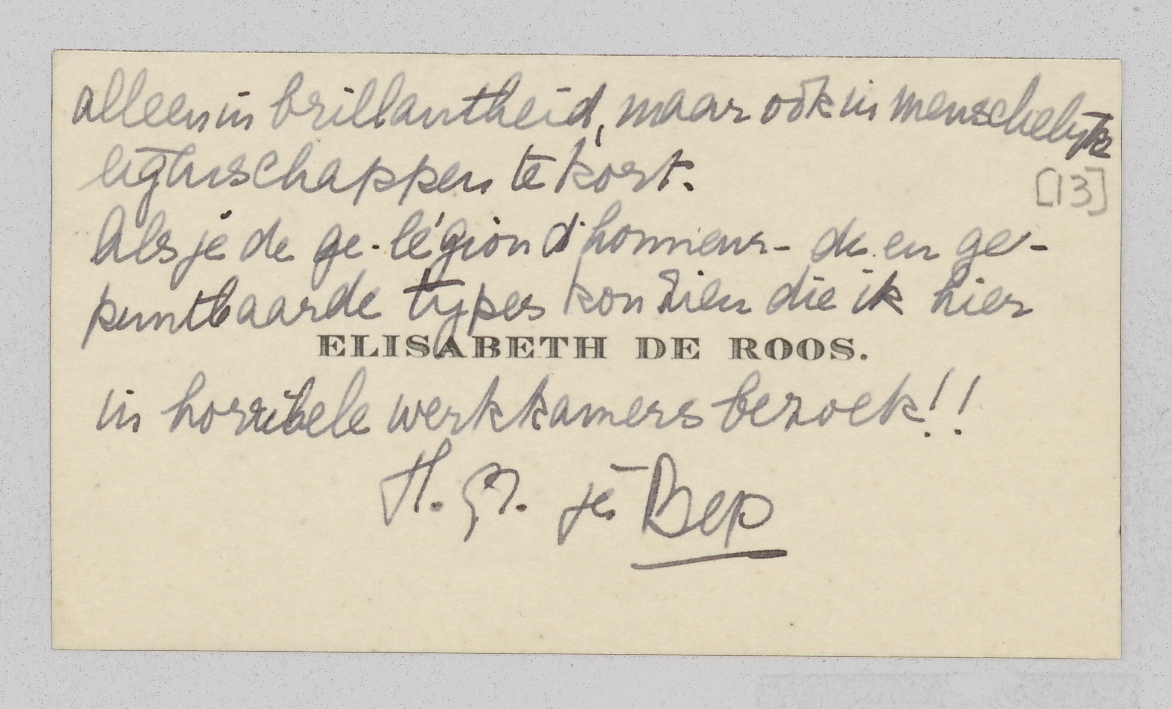 alleen in brillantheid, maar ook in menschelijke
eigenschappen te kort.
[13]
Als je de ge-légion d'honneur-de en ge-
puntbaarde types kon zien die ik hier
ELISABETH DE ROOS.
in horribele werkkamers bezoek!!
H. G. je Bep